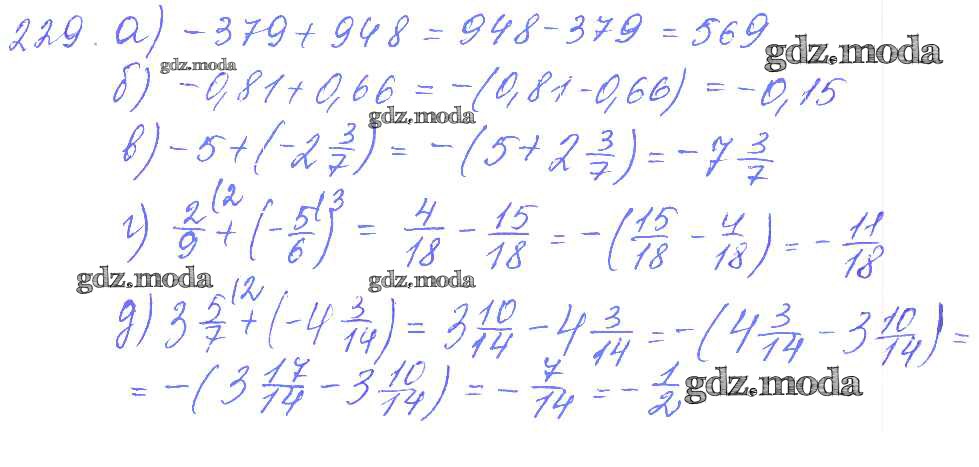 229. а) -379+948 = 948-379 = 569
gdz.moda
gdz.moda
б) -0,81+0,66 = -(0,81-0,66) = -0,15
gdz.moda
в) -5+(-2 3/7) = -(5+2 3/7) = -7 3/7
г) 2/9 (2 + (-5/6 (3) = 4/18 - 15/18 = -(15/18 - 4/18) = -11/18
gdz.moda
gdz.moda
д) 3 5/7 (2 + (-4 3/14) = 3 10/14 - 4 3/14 = -(4 3/14 - 3 10/14) =
= -(3 17/14 - 3 10/14) = -7/14 = -1/2
gdz.moda